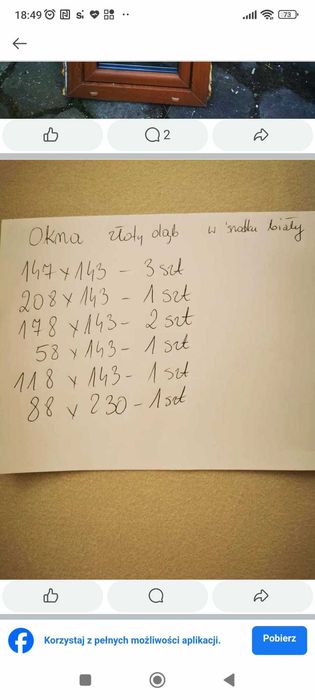 18:49
73
2
Okna złoty dąb w środku biały
147 x 143 - 3 szt
208 x 143 - 1 szt
178 x 143 - 2 szt
58 x 143 - 1 szt
118 x 143 - 1 szt
88 x 230 - 1 szt
Korzystaj z pełnych możliwości aplikacji.
Pobierz